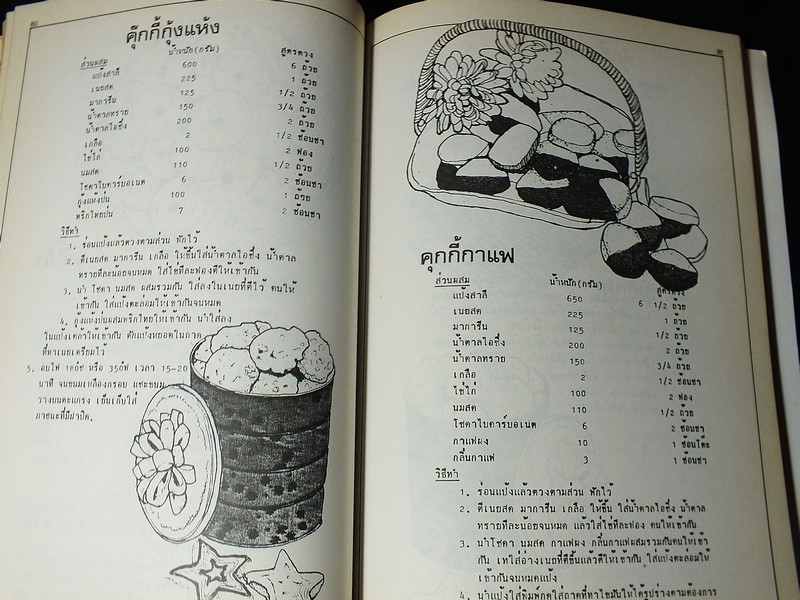 80
คุ๊กกี้กุ้งแห้ง
ส่วนผสม น้ำหนัก(กรัม) สูตรตวง
แป้งสาลี 600 6 ถ้วย
เนยสด 225 1 ถ้วย
มาการีน 125 1/2 ถ้วย
น้ำตาลทราย 150 3/4 ถ้วย
น้ำตาลไอซิ่ง 200 2 ถ้วย
เกลือ 2 1/2 ช้อนชา
ไข่ไก่ 100 2 ฟอง
นมสด 110 1/2 ถ้วย
โซดาไบคาร์บอเนต 6 2 ช้อนชา
กุ้งแห้งป่น 100 1 ถ้วย
พริกไทยป่น 7 2 ช้อนชา
วิธีทำ
1. ร่อนแป้งแล้วตวงตามส่วน พักไว้
2. ตีเนยสด มาการีน เกลือ ให้ขึ้นใส่น้ำตาลไอซิ่ง น้ำตาล
ทรายทีละน้อยจนหมด ใส่ไข่ทีละฟองตีให้เข้ากัน
3. นำ โซดา นมสด ผสมรวมกัน ใส่ลงในเนยที่ตีไว้ คนให้
เข้ากัน ใส่แป้งตะล่อมให้เข้ากันจนหมด
4. กุ้งแห้งป่นผสมพริกไทยให้เข้ากัน นำใส่ลง
ในแป้งเคล้าให้เข้ากัน ตักแป้งหยอดในถาด
ที่ทาเนยเตรียมไว้
5. อบไฟ 180ซ หรือ 350ฟ เวลา 15-20
นาที จนขนมเหลืองกรอบ แซะขนม
วางบนตะแกรง เย็นเก็บใส่
ภาชนะที่มีฝาปิด.
คุกกี้กาแฟ
ส่วนผสม น้ำหนัก(กรัม) สูตรตวง
แป้งสาลี 650 6 1/2 ถ้วย
เนยสด 225 1 ถ้วย
มาการีน 125 1/2 ถ้วย
น้ำตาลไอซิ่ง 200 2 ถ้วย
น้ำตาลทราย 150 3/4 ถ้วย
เกลือ 2 1/2 ช้อนชา
ไข่ไก่ 100 2 ฟอง
นมสด 110 1/2 ถ้วย
โซดาไบคาร์บอเนต 6 2 ช้อนชา
กาแฟผง 10 1 ช้อนโต๊ะ
กลิ่นกาแฟ 3 1 ช้อนชา
วิธีทำ
1. ร่อนแป้งแล้วตวงตามส่วน พักไว้
2. ตีเนยสด มาการีน เกลือ ให้ขึ้น ใส่น้ำตาลไอซิ่ง น้ำตาล
ทรายทีละน้อยจนหมด แล้วใส่ไข่ทีละฟอง คนให้เข้ากัน
3. นำโซดา นมสด กาแฟผง กลิ่นกาแฟผสมรวมกันคนให้เข้า
กัน เทใส่อ่างเนยที่ตีขึ้นแล้วตีให้เข้ากัน ใส่แป้งตะล่อมให้
เข้ากันจนหมดแป้ง
4. นำแป้งใส่พิมพ์กดใส่ถาดที่ทาไขมันให้ได้รูปร่างตามต้องการ